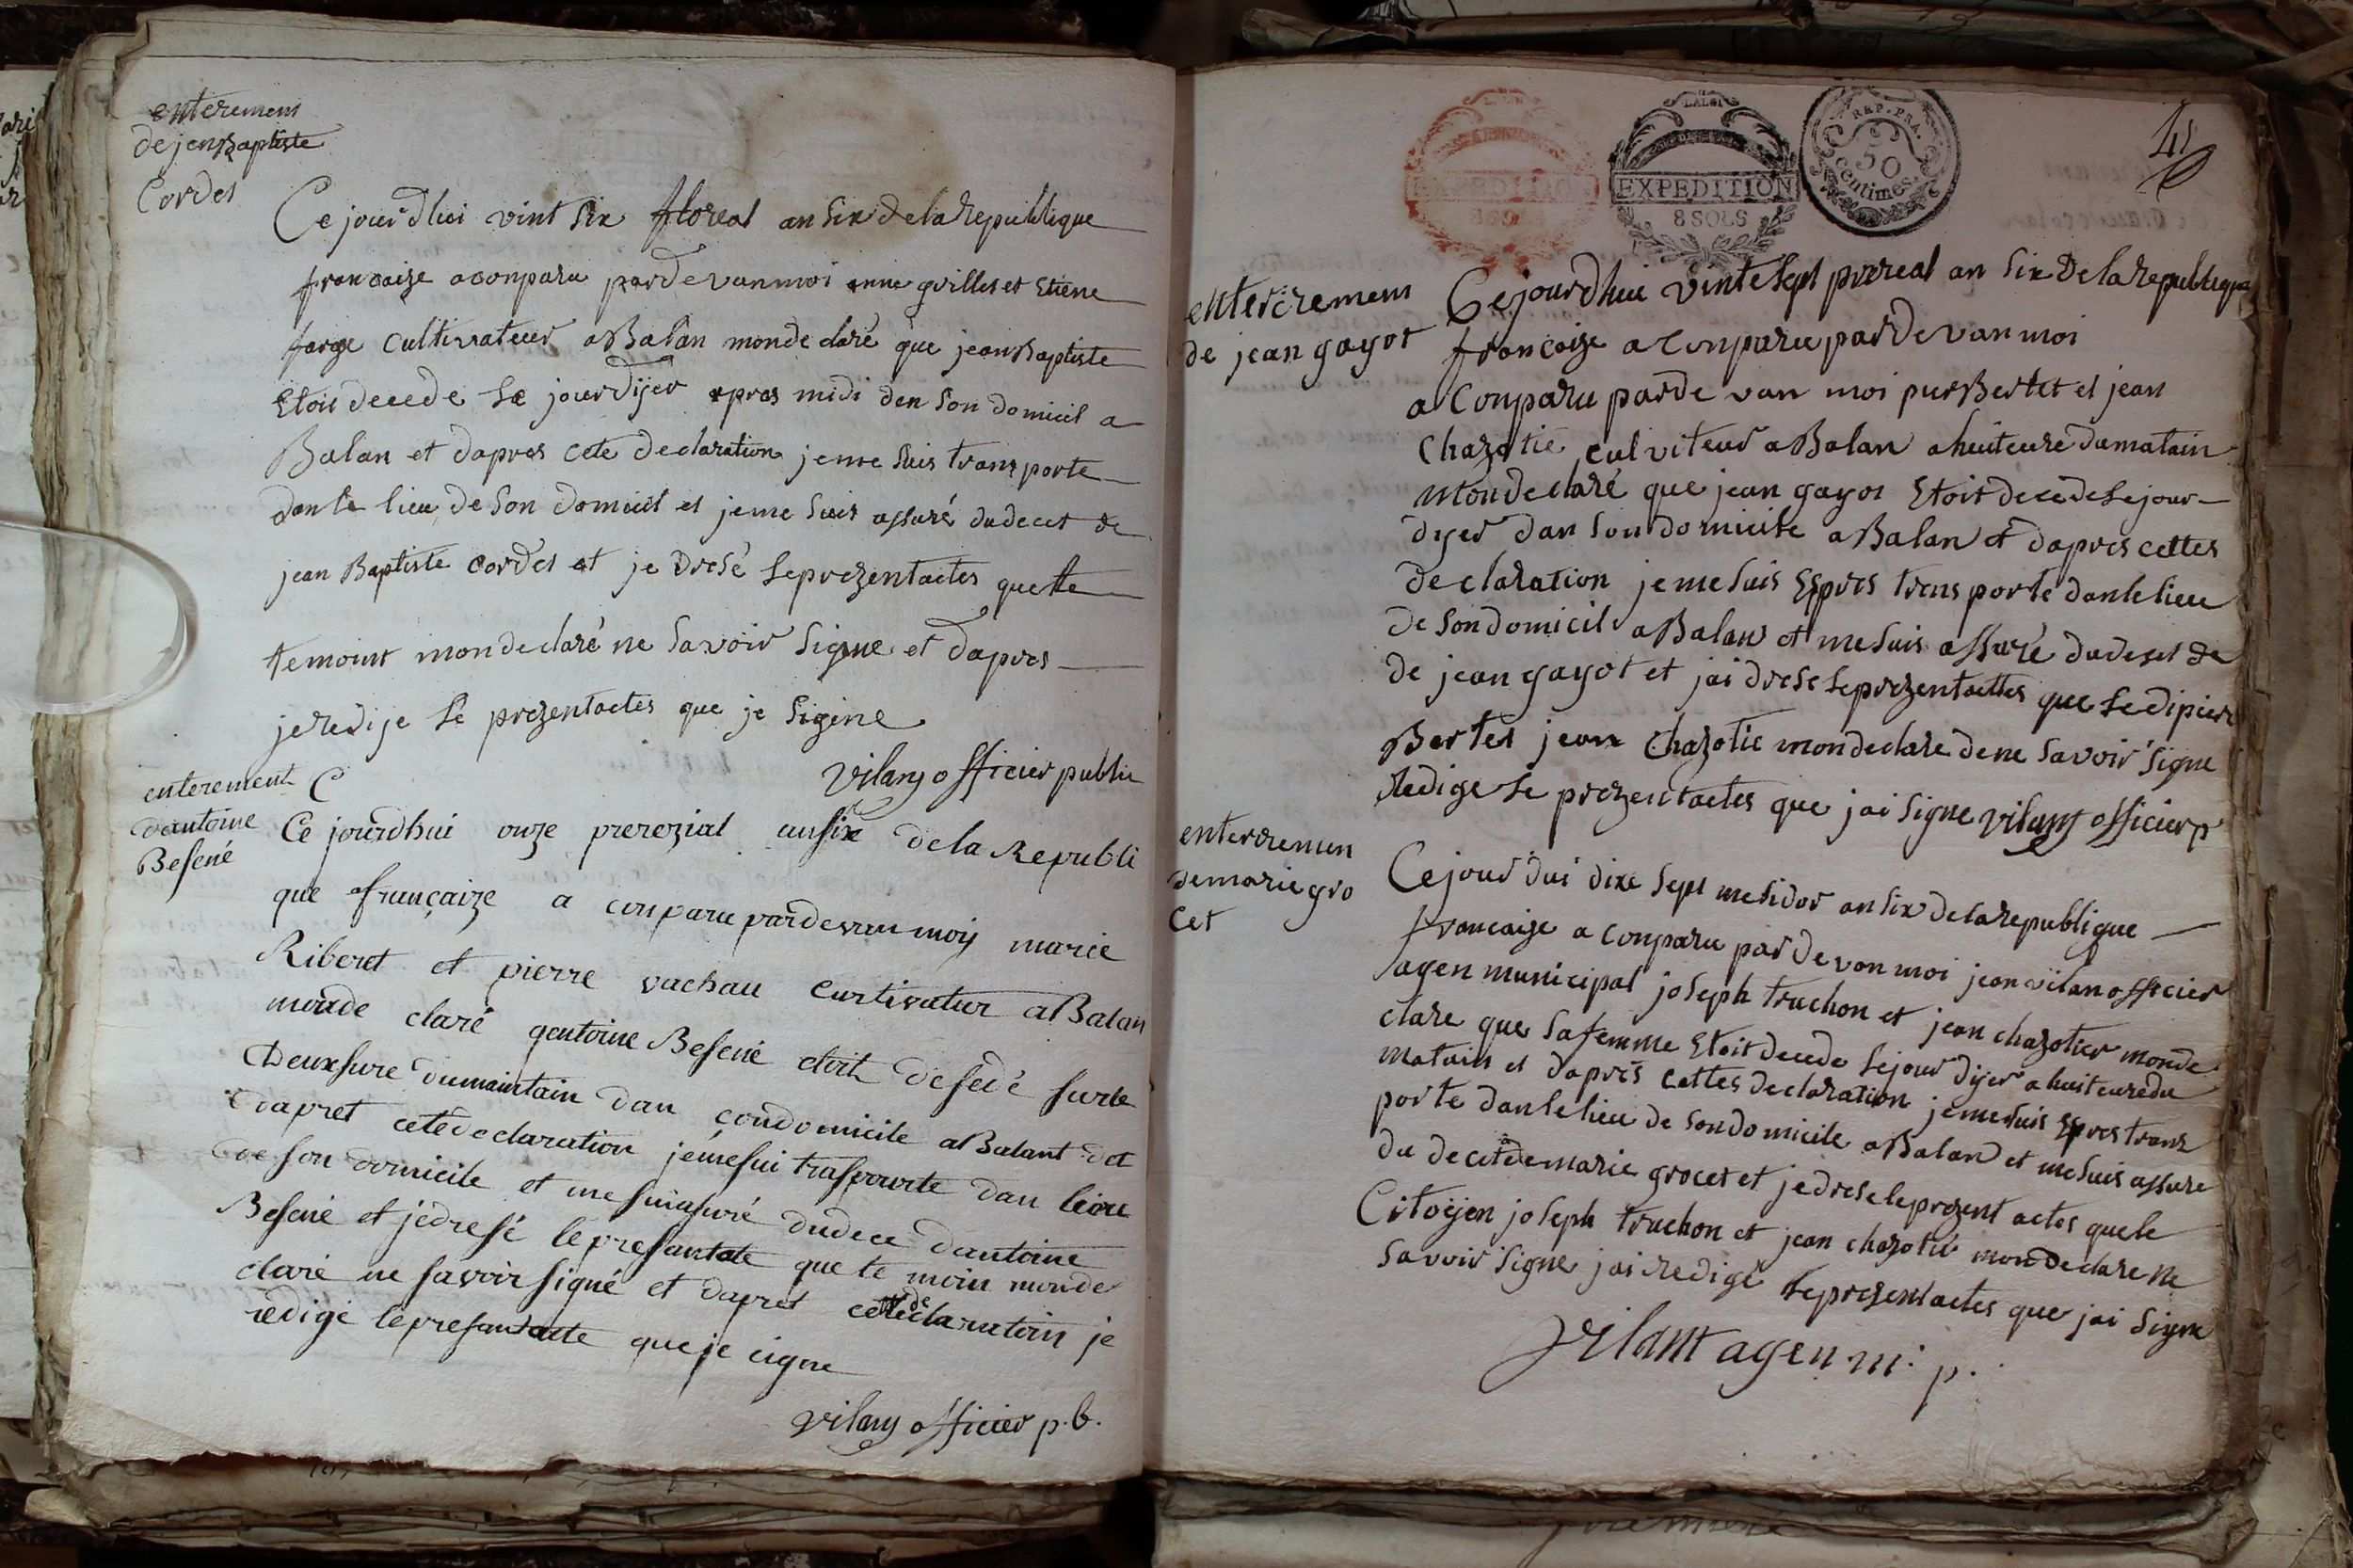 enterement
de jenBaptiste
Cordet
Ce jour d'hui vint six floreal an six de la Republique
francaize a conparu pardevan moi anne guillet et Etiene
farge cultivateur a Balan monde claré que jean Baptiste
Etoit decede se jour dijer apres midi den son domicil a
Balan et dapres cete declaration je me suis transporte
dan le lieu de son domicil et je me suis assuré du decet de
jean Baptiste cordet et je dresé se prezent actes que le
temoint mon declaré ne savoir signe et dapres
je redije se prezent actes que je sigine
vilan officier public
enterement
dantoine
Besené
C
Ce jourdhui onze prerezial an six de la Republi
que françaize a conparu pardevan moy marie
Riberet et pierre vachau curtivatur a Balan
monde claré qantoine Besené etoit desedé surle
Deuxsure dumaintain dan condomicile a Balant det
dapret cete declaration jemesui trasporte dan leieu
de son domicile et me suiasuré dudece dantoine
Besené et jédresé le presantate que te moin monde
claré ne savoir signé et dapret cete declaration je
redige le presantacte que je cigne
vilan officier p.b.
LALOI
EXPEDITION
8 SOLS
EXPEDITION
8 SOLS
REP. FRA.
50
centimes.
entercrement
de jean gayot
Ce jourdhui vinte sept prereal an six de la republique
francoize a conparu pardevan moi
a conparu parde van moi pierBertet et jean
chazotie culviteur a Balan a huiteure dumatain
mon declaré que jean gayot Etoit decede se jour
dyer dan son domicile a Balan et dapres cettes
declaration je me suis Espres transporte dan le lieu
de son domicil a Balan et me suis assuré du deset de
de jean gayot et jai drese se prezent acttes que se di pier
Bertet jean chazotie mon declare de ne savoir signe
Redige se prezent actes que jai signe vilant officier p
enterremen
de marie gro
cet
Ce jour dui dixe sept mesidor an six de la republique
francaize a conparu par devon moi jean vilan officier
agen municipal joseph truchon et jean chazotier monde
clare que sa femme Etoit decede se jour dijer a huiteure du
matain et dapres cettes declaration je me suis Espres trans
porte dan le lieu de son domicile a Balan et me suis assure
du decet de marie grocet et je drese le prezent actes que le
Citoyen joseph truchon et jean chazotie mon declare ne
savoir signe jai redige se prezent actes que jai signe
vilant agen m. p.